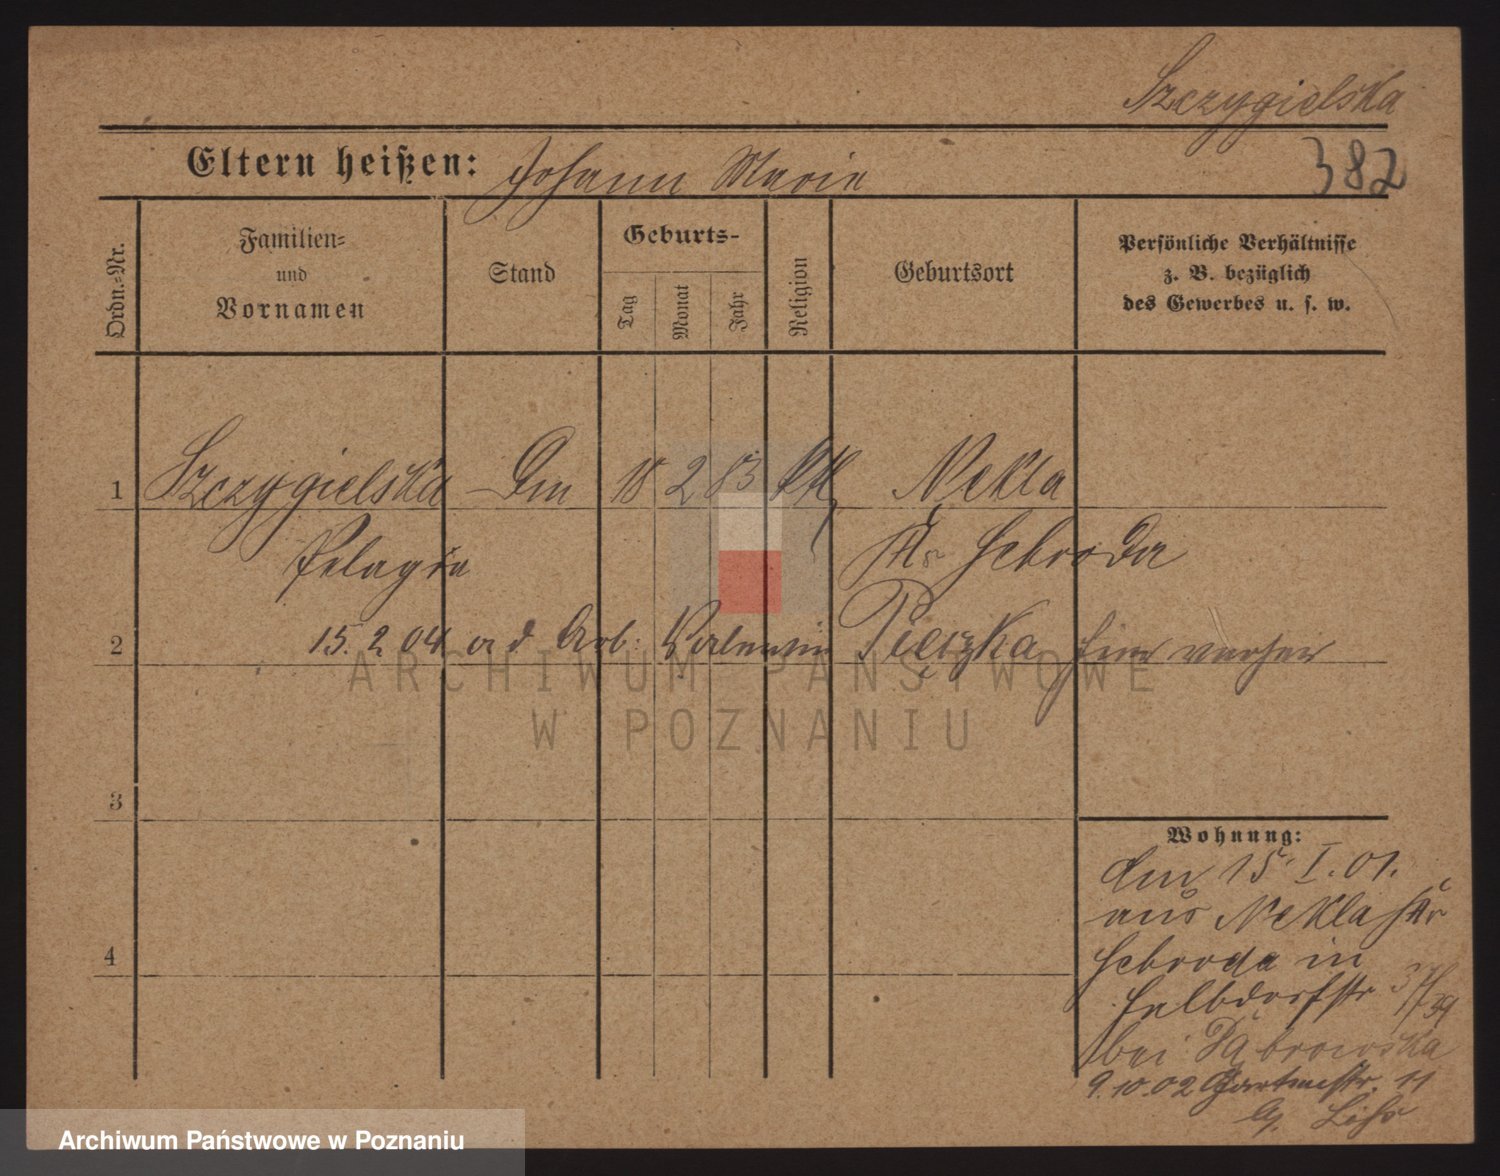 Szczygielska
Eltern heißen: Johann Marie
382
Ordn.-Nr.
Familien-
und
Vornamen
Stand
Geburts-
Tag
Monat
Jahr
Religion
Geburtsort
Persönliche Verhältnisse
z. B. bezüglich
des Gewerbes u. s. w.
1 Szczygielska Dm 18 2 83 Kth Nekla
Pelagia Kr Schroda
2 15. 2 04 a d Arb. Valentin Pięczka
3
4
Wohnung:
den 15. I. 01.
aus Nekla Kr
Schroda in
Halbdorfstr 37/39
bei Dąbrowska
9.10.02 Gartenstr. 11
ARCHIWUM PAŃSTWOWE
W POZNANIU
Archiwum Państwowe w Poznaniu